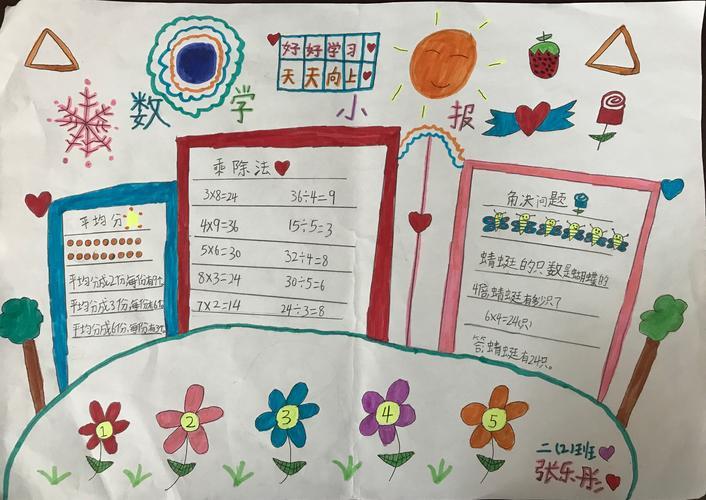 好好学习
天天向上
数学小报
平均分
平均分成2份,每份有9个
平均分成3份,每份有6个
平均分成6份,每份有3个
乘除法
3×8=24 36÷4=9
4×9=36 15÷5=3
5×6=30 32÷4=8
8×3=24 30÷5=6
7×2=14 24÷3=8
角决问题
蜻蜓的只数是蝴蝶的
4倍,蜻蜓有多少只?
6×4=24(只)
答:蜻蜓有24只。
1 2 3 4 5
二(2)班
张乐彤